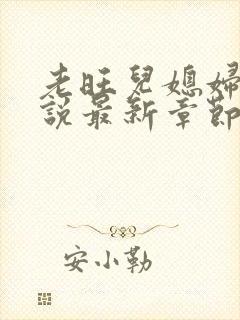 老旺兒媳婦
說最新章節
安小勒